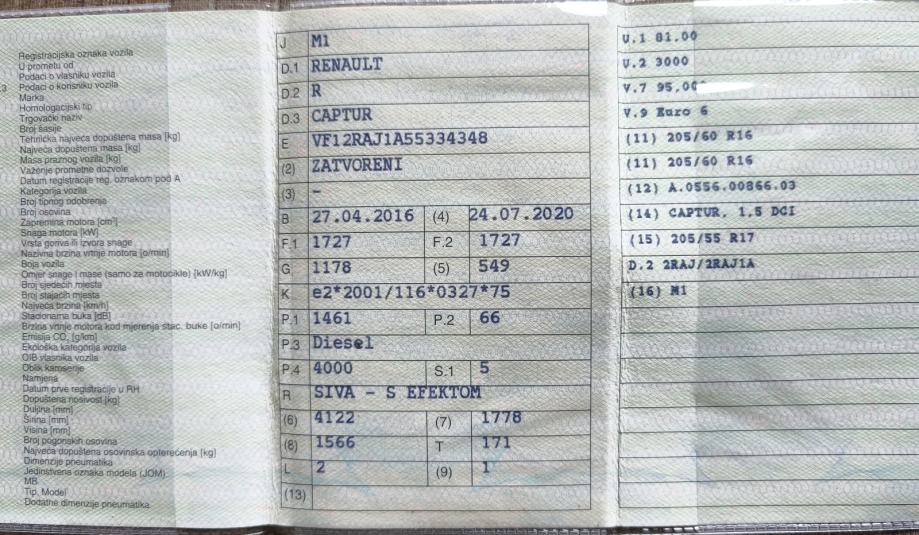 Registracijska oznaka vozila
U prometu od
Podaci o vlasniku vozila
3 Podaci o korisniku vozila
Marka
Homologacijski tip
Trgovački naziv
Broj šasije
Tehnička najveća dopuštena masa [kg]
Najveća dopuštena masa [kg]
Masa praznog vozila [kg]
Važenje prometne dozvole
Datum registracije reg. oznakom pod A
Kategorija vozila
Broj tipnog odobrenja
Broj osovina
Zapremina motora [cm³]
Snaga motora [kW]
Vrsta goriva ili izvora snage
Nazivna brzina vrtnje motora [o/min]
Boja vozila
Omjer snage i mase (samo za motocikle) [kW/kg]
Broj sjedećih mjesta
Broj stajaćih mjesta
Najveća brzina [km/h]
Stacionarna buka [dB]
Brzina vrtnje motora kod mjerenja stac. buke [o/min]
Emisija CO₂ [g/km]
Ekološka kategorija vozila
OIB vlasnika vozila
Oblik karoserije
Namjena
Datum prve registracije u RH
Dopuštena nosivost [kg]
Duljina [mm]
Širina [mm]
Visina [mm]
Broj pogonskih osovina
Najveća dopuštena osovinska opterećenja [kg]
Dimenzije pneumatika
Jedinstvena oznaka modela (JOM)
MB
Tip, Model
Dodatne dimenzije pneumatika
J M1
D.1 RENAULT
D.2 R
D.3 CAPTUR
E VF12RAJ1A55334348
(2) ZATVORENI
(3) –
B 27.04.2016 (4) 24.07.2020
F.1 1727 F.2 1727
G 1178 (5) 549
K e2*2001/116*0327*75
P.1 1461 P.2 66
P.3 Diesel
P.4 4000 S.1 5
R SIVA - S EFEKTOM
(6) 4122 (7) 1778
(8) 1566 T 171
L 2 (9) 1
(13)
V.1 81.00
V.2 3000
V.7 95,00
V.9 Euro 6
(11) 205/60 R16
(11) 205/60 R16
(12) A.0556.00866.03
(14) CAPTUR, 1.5 DCI
(15) 205/55 R17
D.2 2RAJ/2RAJ1A
(16) M1